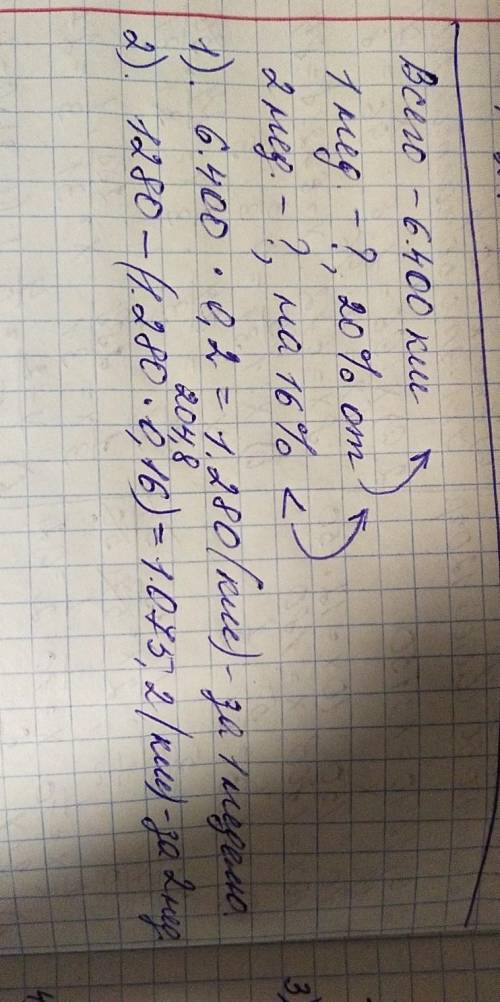 Всего – 6.400 км
1 нед. – ?, 20% от
2 нед. – ?, на 16% <
1). 6.400 · 0,2 = 1.280 (км) – за 1 неделю.
204,8
2). 1280 – (1.280 · 0,16) = 1.075,2 (км) – за 2 нед.
3,